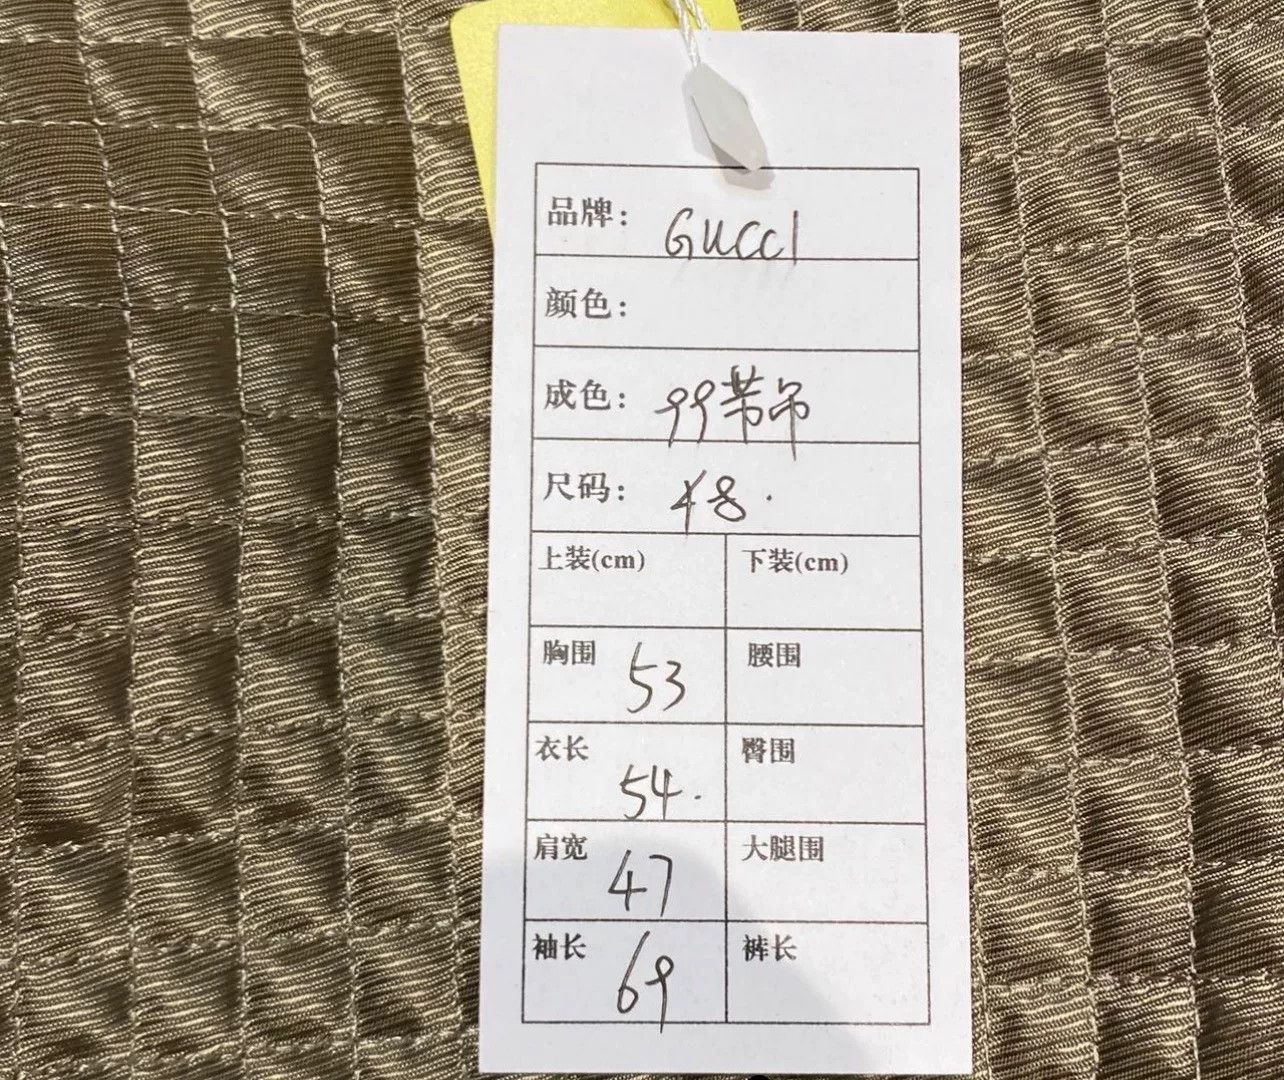 品牌： GUCCI
颜色：
成色： 99带吊
尺码： 48.
上装(cm) 下装(cm)
胸围 53 腰围
衣长 54. 臀围
肩宽 47 大腿围
袖长 69 裤长